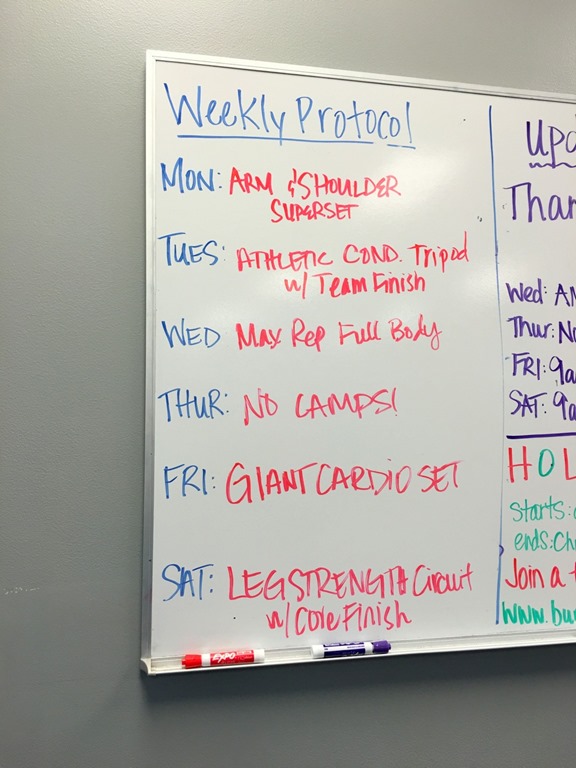 Weekly Protocol
MON: ARM & SHOULDER
SUPERSET
TUES: ATHLETIC COND. Tripod
w/ Team Finish
WED Max Rep Full Body
THUR: NO CAMPS!
FRI: GIANT CARDIO SET
SAT: LEG STRENGTH Circuit
w/ Core Finish
EXPO
Wed:
Thur:
FRI:
SAT:
starts:
ends:
Join a
www.